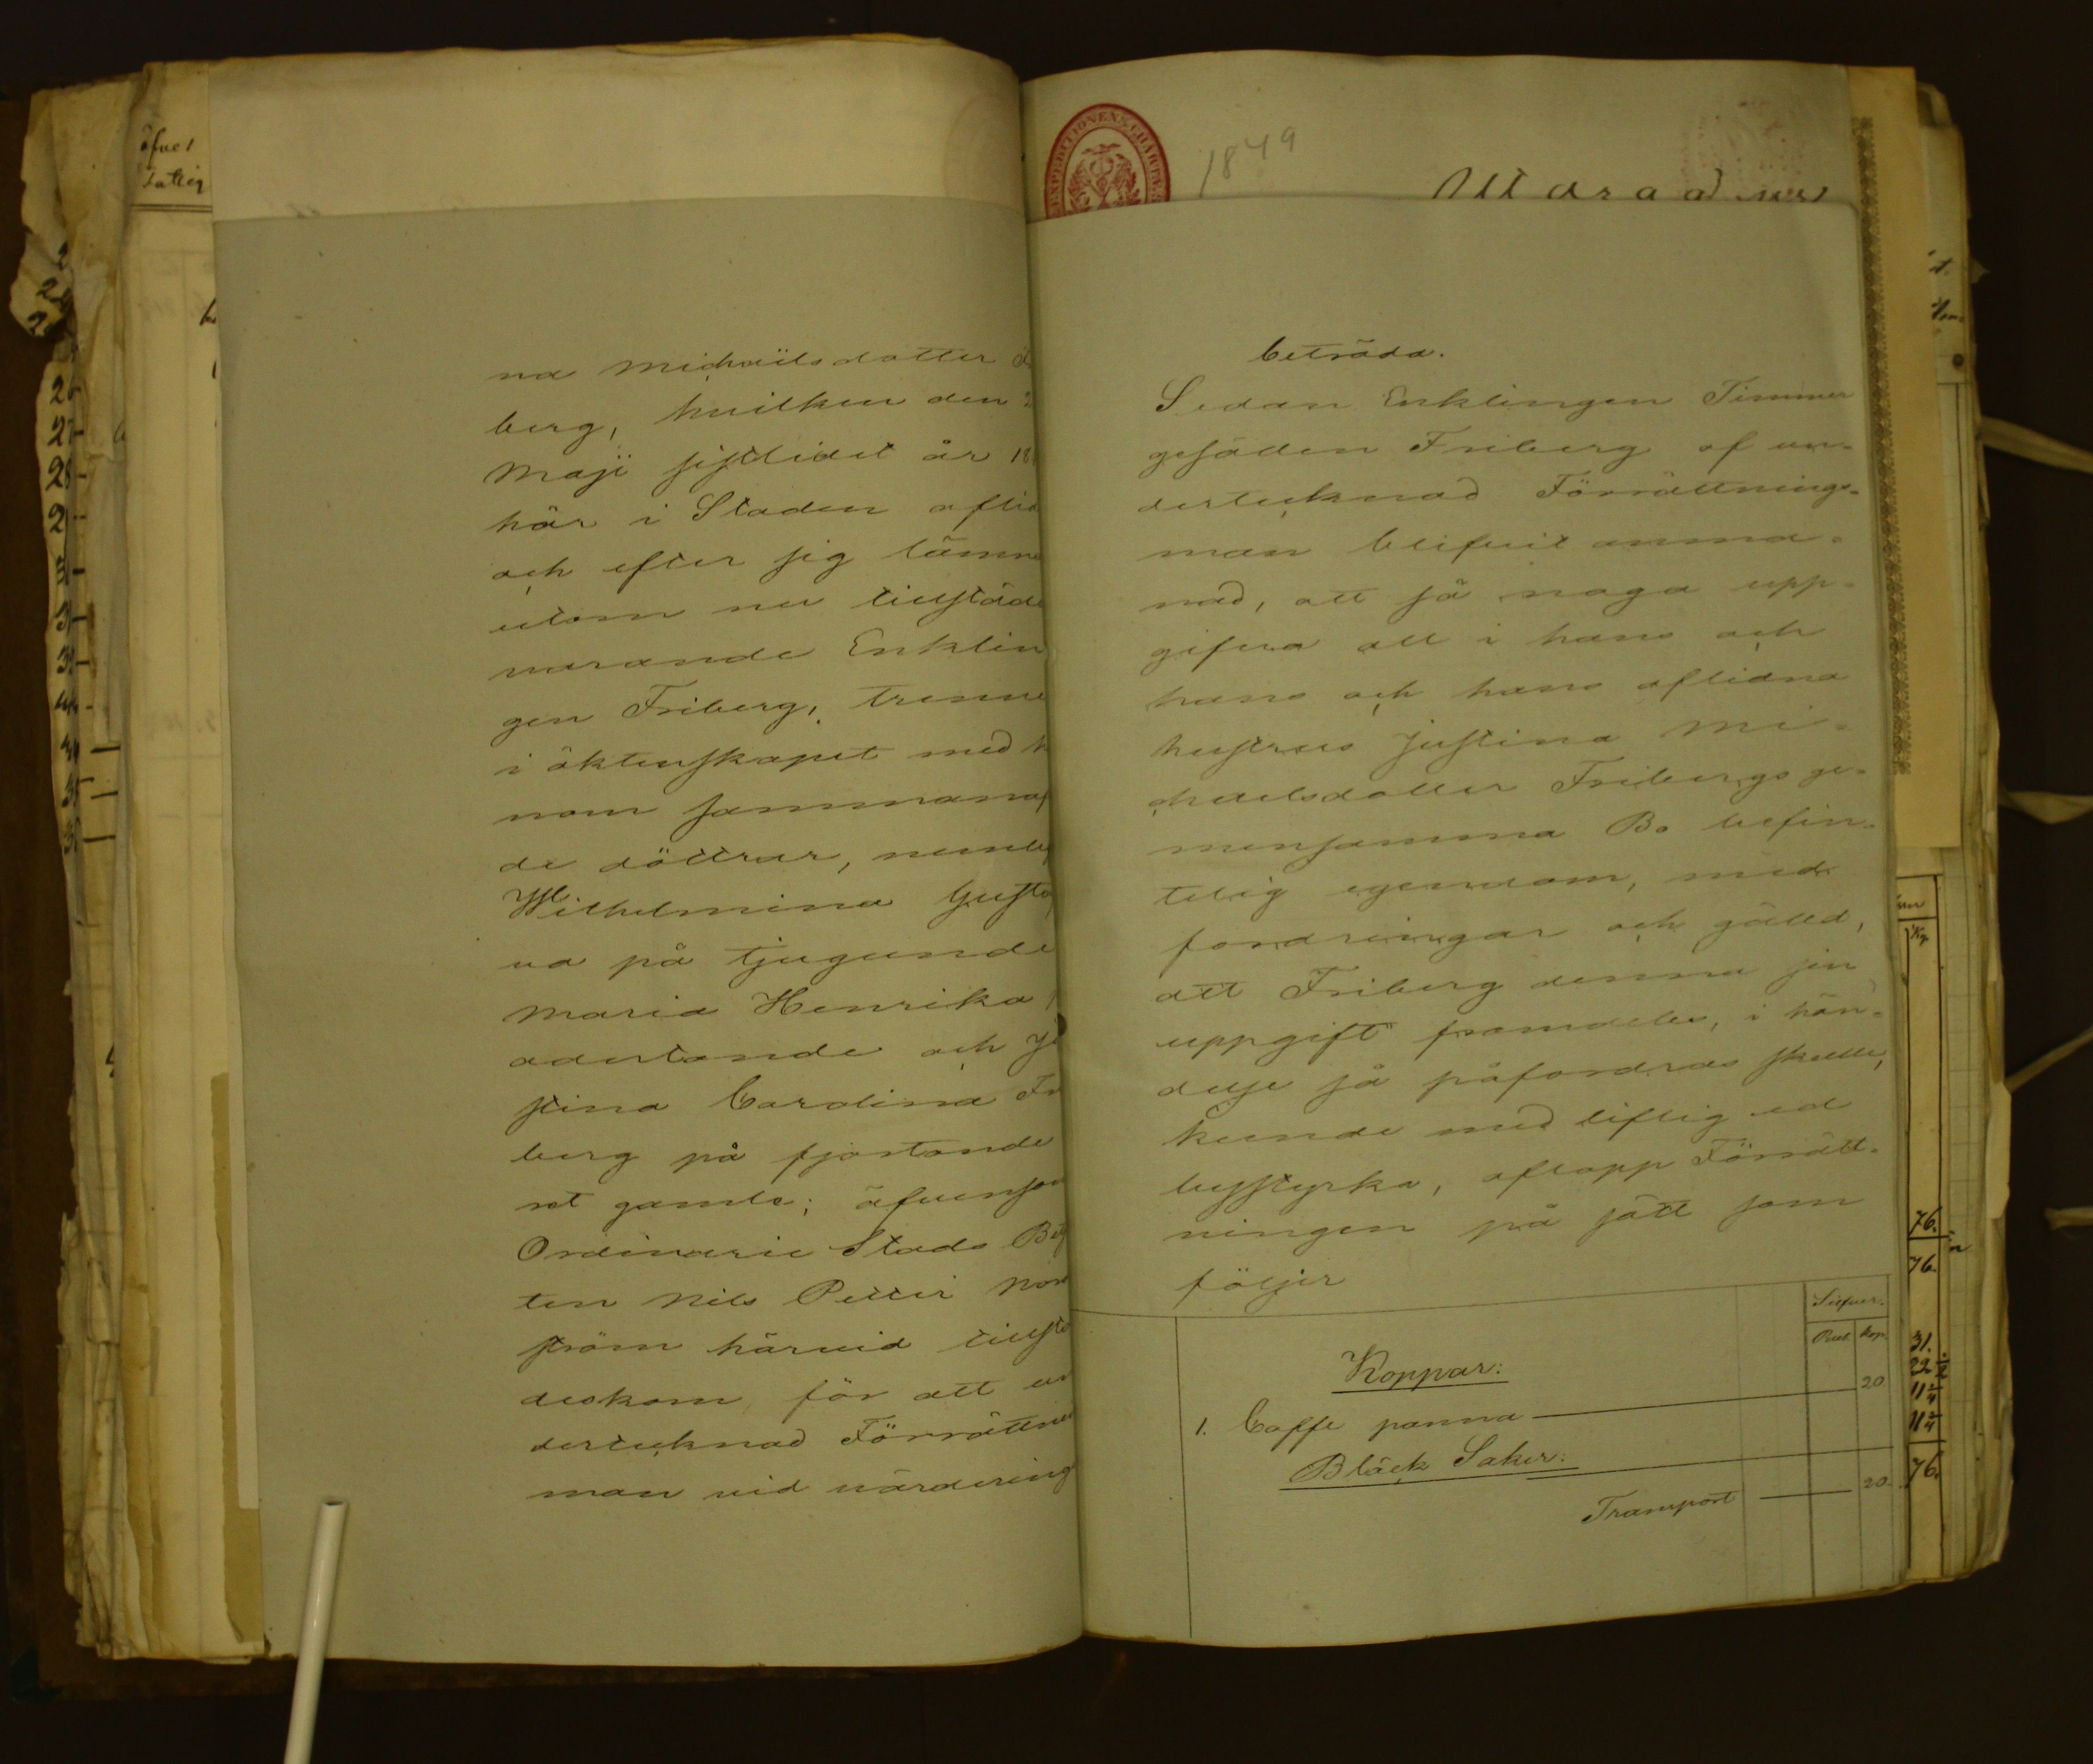 na Michaëlsdotter
berg, hvilken den
Maji sistlidet år 18
här i Staden aflid
och efter sig lämna
utom nu tillstäde
varande Enklin
gen Friberg, trenne
i äktenskapet med h
nom sammanaf
de döttrar, nemli
Wilhelmina Gusta
va på tjugunde
Maria Henrika
adertonde och Ju
stina Carolina Fri
berg på fjortonde
ret gamla; äfvensom
Ordinarie Stads Bet
ten Nils Petter Nord
ström härvid tillstä
deskom, för att un
dertecknad Förrättnin
man vid värdering
1849
beträda.
Sedan Enklingen Timmer
gesällen Friberg af un-
dertecknad Förrättnings-
man blifvit anma-
nad, att så noga upp-
gifva all i hans och
hans och hans aflidna
hustrus Justina Mi-
chaelsdotter Fribergs ge-
mensamma Bo befin-
telig egendom, med
fordringar och gälld,
att Friberg denna sin
uppgift framdeles, i hän-
delse så påfordras skulle,
kunde med liflig ed
besstyrka, aflopp Förrätt-
ningen på sätt som
följer
Silfver.
Rub. Kop.
Koppar:
1. Caffe panna — 20
Bläck Saker:
Transport — 20.